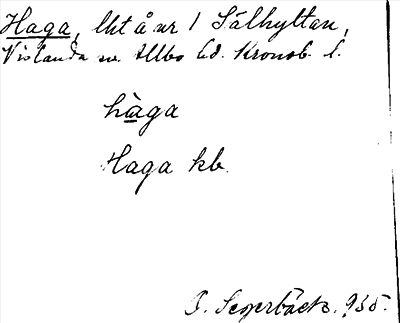 Haga, lht å nr 1 Sälhyltan,
Vislanda sn. Allbo hd. Kronob. l.
hàga
Haga kb.
Segerbäck. 935.